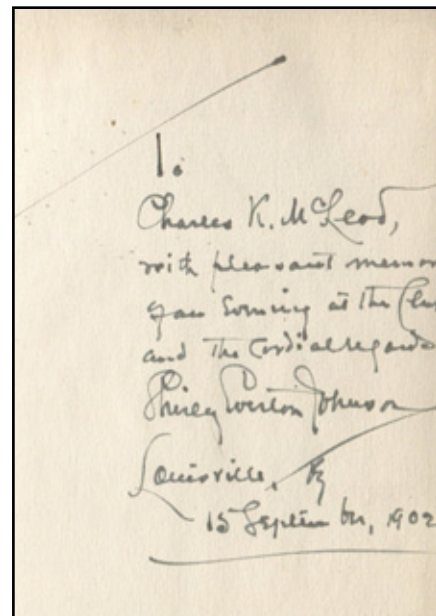 To
Charles K. McLeod,
with pleasant memor
of an Evening at the Clu
and the Cordial regards
Shirley Everton Johnson
Louisville, Ky
15 September, 1902